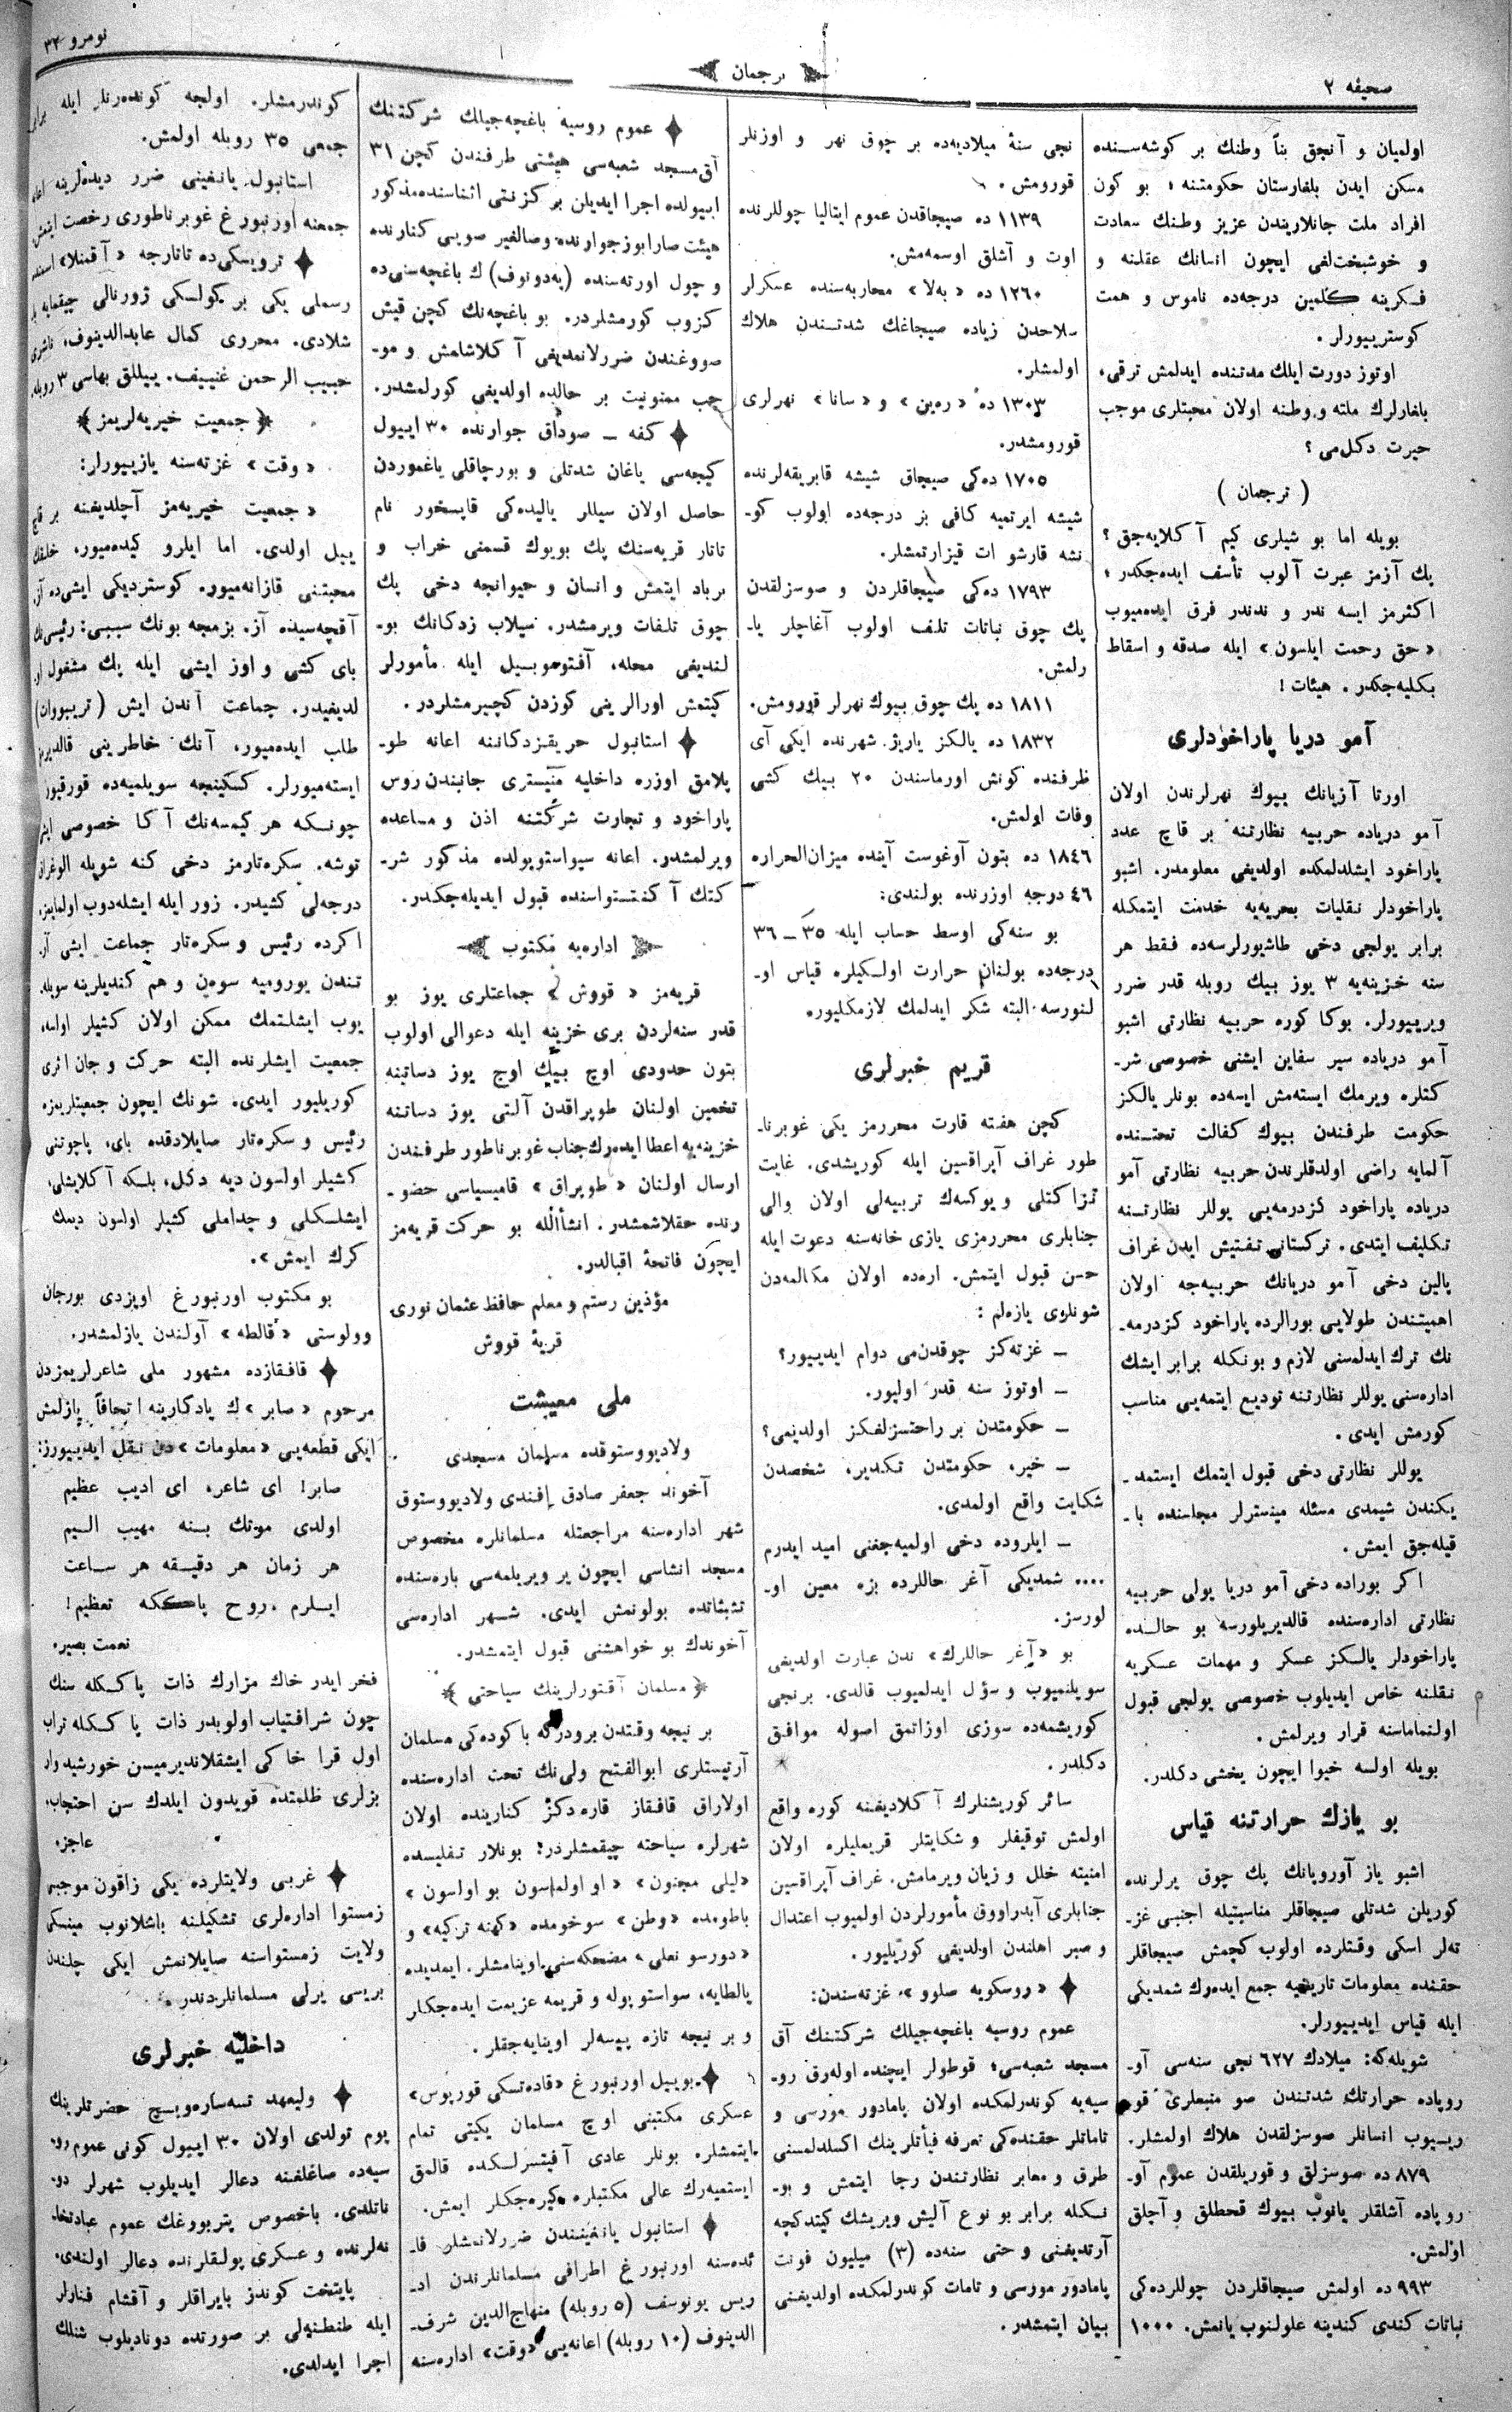 صحیفه ۲
ترجمان
نومرو ۳۲
اولمیان و آنجق بناً وطنك بر كوشه‌سـنده
مسكن ایدن بلغارستان حكومتنه؛ بو كون
افراد ملت جانلاریندن عزیز وطنك سعادت
و خوشبختلغی ایچون انسانك عقلنه و
فكرینه كلمین درجه‌ده ناموس و همت
كوسترییورلر.
اوتوز دورت ایلك مدتنده ایدلمش ترقی،
بلغارلرك ملته و وطنه اولان محبتلری موجب
حیرت دكل‌می؟
( ترجمان )
بویله اما بو شیلری كیم آكلایه‌جق؟
پك آزمز عبرت آلوب تأسف ایده‌جكدر؛
اكثرمز ایسه ندر و نه‌ندر فرق ایده‌میوب
«حق رحمت ایلسون» ایله صدقه و اسقاط
بكلیه‌جكدر. هیئات!
آمو دریا پاراخودلری
اورتا آزیانك بیوك نهرلرندن اولان
آمو دریاده حربیه نظارتنه بر قاچ عدد
پاراخود ایشلدلمكده اولدیغی معلومدر. اشبو
پاراخودلر نقلیات بحریه‌یه خدمت ایتمكله
برابر یولجی دخی طاشیورلرسه‌ده فقط هر
سنه خزینه‌یه ۳ یوز بیك روبله قدر ضرر
ویرییورلر. بوكا كوره حربیه نظارتی اشبو
آمو دریاده سیر سفاین ایشنی خصوصی شر-
كتلره ویرمك ایسته‌مش ایسه‌ده بونلر یالكز
حكومت طرفندن بیوك كفالت تحتـنده
آلمایه راضی اولدقلرندن حربیه نظارتی آمو
دریاده پاراخود كزدرمه‌یی یوللر نظارتـنه
تكلیف ایتدی. تركستانی تفتیش ایدن غراف
پالین دخی آمو دریانك حربیه‌جه اولان
اهمیتندن طولایی بورالرده پاراخود كزدرمه-
نك ترك ایدلمسنی لازم و بونكله برابر ایشك
اداره‌سنی یوللر نظارتنه تودیع ایتمه‌یی مناسب
كورمش ایدی.
یوللر نظارتی دخی قبول ایتمك ایستمد-
یكندن شیمدی مسئله مینسترلر مجلسنده با-
قیله‌جق ایمش.
اكر بوراده دخی آمو دریا یولی حربیه
نظارتی اداره‌سنده قالدیریلورسه بو حالـده
پاراخودلر یالـكز عسكر و مهمات عسكریه
نقلنه خاص ایدیلوب خصوصی یولجی قبول
اولنماماسنه قرار ویرلمش.
بویله اولسه خیوا ایچون یخشی دكلدر.
بو یازك حرارتنه قیاس
اشبو یاز آوروپانك پك چوق یرلرنده
كوریلن شدتلی صیجاقلر مناسبتیله اجنبی غز-
ته‌لر اسكی وقتلرده اولوب كچمش صیجاقلر
حقنده معلومات تاریخیه جمع ایده‌رك شمدیكی
ایله قیاس ایدییورلر.
شویله‌كه: میلادك ۶۲۷ نجی سنه‌سی آو-
روپاده حرارتك شدتندن صو منبعلری قو-
ریـیوب انسانلر صوسزلقدن هلاك اولمشلر.
۸۷۹ ده صوسزلق و قوریلقدن عموم آو-
روپاده آشلقلر یانوب بیوك قحطلق و آچلق
اولمش.
۹۹۳ ده اولمش صیجاقلردن چوللرده‌كی
نباتات كندی كندینه علولنوب یانمش. ۱۰۰۰
نجی سنهٔ میلادیه‌ده بر چوق نهر و اوزنلر
قورومش.
۱۱۳۹ ده صیجاقدن عموم ایتالیا چوللرنده
اوت و آشلق اوسمه‌مش.
۱۲۶۰ ده «به‌لا» محاربه‌سنده عسكرلر
سلاحدن زیاده صیجاغك شدتـندن هلاك
اولمشلر.
۱۳۰۳ ده «ره‌ین» و «سانا» نهرلری
قورومشدر.
۱۷۰۵ ده‌كی صیجاق شیشه قابریقه‌لرنده
شیشه ایرتمیه كافی بر درجه‌ده اولوب كو-
نشه قارشو ات قیزارتمشلر.
۱۷۹۳ ده‌كی صیجاقلردن و صوسزلقدن
پك چوق نباتات تلف اولوب آغاچلر یا-
رلمش.
۱۸۱۱ ده پك چوق بیوك نهرلر قورومش.
۱۸۳۲ ده یالكز پاریژ شهرنده ایكی آی
ظرفنده كونش اورماسندن ۲۰ بیك كشی
وفات اولمش.
۱۸۴۶ ده بتون آوغوست آینده میزان‌الحراره
۴۶ درجه اوزرنده بولندی:
بو سنه‌كی اوسط حساب ایله ۳۵ـ۳۶
درجه‌ده بولنان حرارت اولـكیلره قیاس او-
لنورسه البته شكر ایدلمك لازمكلیور.
قریم خبرلری
كچن هفته قارت محررمز یكی غوبرنا-
طور غراف آپراقسین ایله كوریشدی. غایت
نزاكتلی و یوكسك تربیه‌لی اولان والی
جنابلری محررمزی یازی خانه‌سنه دعوت ایله
حسن قبول ایتمش. اره‌ده اولان مكالمه‌دن
شونلری یازه‌لم:
ـ غزته‌كز چوقدن‌می دوام ایدییور؟
ـ اوتوز سنه قدر اولیور.
ـ حكومتدن بر راحتسزلغكز اولدیمی؟
ـ خیر، حكومتدن تكدیر، شخصدن
شكایت واقع اولمدی.
ـ ایلروده دخی اولمیه‌جغنی امید ایدرم
.... شمدیكی آغر حاللرده بزه معین او-
لورسز.
بو «آغر حاللرك» ندن عبارت اولدیغی
سویلنمیوب و سؤل ایدلمیوب قالدی. برنجی
كوریشمه‌ده سوزی اوزاتمق اصوله موافق
دكلدر.
سائر كوریشنلرك آكلادیغنه كوره واقع
اولمش توقیفلر و شكایتلر قریملیلره اولان
امنیته خلل و زیان ویرمامش. غراف آپراقسین
جنابلری آیدراووق مأمورلردن اولمیوب اعتدال
و صبر اهلندن اولدیغی كوریلیور.
«روسكویه صلوو» غزته‌سندن:
عموم روسیه باغچه‌جیلك شركتـنك آق
مسجد شعبه‌سی؛ قوطولر ایچنده اوله‌رق رو-
سیه‌یه كوندرلمكده اولان پامادور مورسی و
تاماتلر حقنده‌كی تعرفه فیأتلرینك اكسلدلمسنی
طرق و معابر نظارتندن رجا ایتمش و بو-
نـكله برابر بو نوع آلیش ویریشك كیتدكچه
آرتدیغنی و حتی سنه‌ده (۳) میلیون فونت
پامادور مورسی و تامات كوندرلمكده اولدیغنی
بیان ایتمشدر.
عموم روسیه باغچه‌جیلك شركتنك
آق‌مسجد شعبه‌سی هیئتی طرفندن كچن ۳۱
اییولده اجرا ایدیلن بر كزنتی اثناسنده مذكور
هیئت صارابوز جوارنده و صالغیر صویی كنارنده
و چول اورته‌سنده (یه‌دونوف) ك باغچه‌سنی‌ده
كزوب كورمشلردر. بو باغچه‌نك كچن قیش
صووغندن ضررلانمدیغی آكلاشلمش و مو-
جب ممنونیت بر حالده اولدیغی كورلمشدر.
كفه ـ صوداق جوارنده ۳۰ اییول
كیجه‌سی یاغان شدتلی و بورچاقلی یاغموردن
حاصل اولان سیللر یالیده‌كی قاپسخور نام
تاتار قریه‌سنك پك بویوك قسمنی خراب و
برباد ایتمش و انسان و حیوانجه دخی پك
چوق تلفات ویرمشدر. سیلاب زدكانك بو-
لندیغی محله، آفتوموبـیل ایله مأمورلر
كیتمش اورالرینی كوزدن كچیرمشلردر.
استانبول حریقـزدكاننه اعانه طو-
پلامق اوزره داخلیه منیستری جانبندن روس
پاراخود و تجارت شركتـنه اذن و مساعده
ویرلمشدر. اعانه سیواستوپولده مذكور شر-
كتك آكنتستواسنده قبول ایدیله‌جكدر.
اداره‌یه مكتوب
قریه‌مز «قووش» جماعتلری یوز بو
قدر سنه‌لردن بری خزینه ایله دعوالی اولوب
بتون حدودی اوچ بـیك اوچ یوز دساتینه
تخمین اولنان طوپراقدن آلتی یوز دساتنه
خزینه‌یه اعطا ایده‌رك جناب غوبرناطور طرفندن
ارسال اولنان «طوپراق» قامیسیاسی حضو-
رنده حقلاشمشدر. انشأالله بو حركت قریه‌مز
ایچون فاتحهٔ اقبالدر.
مؤذین رستم و معلم حافظ عثمان نوری
قریهٔ قووش
ملی معیشت
ولادیووستوقده مسلمان مسجدی
آخوند جعفر صادق افندی ولادیووستوق
شهر اداره‌سنه مراجعتله مسلمانلره مخصوص
مسجد انشاسی ایچون یر ویریلمه‌سی باره‌سنده
تشبثاتده بولونمش ایدی. شـهر اداره‌سی
آخوندك بو خواهشنی قبول ایتمشدر.
مسلمان آقتورلرینك سیاحتی
بر نیچه وقتدن برودرکه باكوده‌كی مسلمان
آرتیستلری ابوالفتح ولی‌نك تحت اداره‌سنده
اولاراق قافقاز قاره دكز كنارینده اولان
شهرلره سیاحته چیقمشلردر: بونلار تفلیسده
«لیلی مجنون» «او اولماسون بو اولسون»
باطومده «وطن» سوخومده «كهنه تركیه» و
«دورسو نعلی» مضحكه‌سنی اوینامشلر. ایمدیده
یالطایه، سواستوپوله و قریمه عزیمت ایده‌جكلر
و بر نیچه تازه پیه‌سه‌لر اوینایه‌جقلر.
بوییل اورنبورغ «قاده‌تسكی قورپوس»
عسكری مكتبنی اوچ مسلمان یكیتی تمام
ایتمشلر. بونلر عادی آفیتسرلـكده قالمق
ایستمیه‌رك عالی مكتبلره كیره‌جكلر ایمش.
استانبول یانغیـنندن ضررلانمشلر فا-
ئده‌سنه اورنبورغ اطرافی مسلمانلرندن اد-
ریس یونوسف (۵ روبله) منهاج‌الدین شرف-
الدینوف (۱۰ روبله) اعانه‌یی «وقت» اداره‌سنه
كوندرمشلر. اولجه كوندرنلر ایله برابر
جمعی ۳۵ روبله اولمش.
استانبول یانغینی ضرر دیده‌لرینه اعانه
جمعنه اورنبورغ غوبرناطوری رخصت ایتمش.
ترویسكی‌ده تاتارجه «آقمنلا» اسمنده
رسملی یكی بر كولـكی ژورنالی چیقمایه با-
شلادی. محرری كمال عابدالدینوف، ناشری
حبیب الرحمن غنییف. ییللق بهاسی ۳ روبله.
جمعیت خیریه‌لریمز
«وقت» غزته‌سنه یازییورلر:
«جمعیت خیریه‌مز آچلدیغنه بر قاچ
ییل اولدی. اما ایلرو كیده‌میور، خلقك
محبتنی قازانه‌میور. كوستردیكی ایشی‌ده آز،
آقچه‌سیده آز. بزمجه بونك سببی: رئیسی‌نك
بای كشی و اوز ایشی ایله پك مشغول او-
لدیغیدر. جماعت آندن ایش (تریبووات)
طلب ایده‌میور، آنك خاطرینی قالدیرمق
ایسته‌میورلر. كسكینجه سویلمیه‌ده قورقیور
چونـكه هر كیمسه‌نك آكا خصوصی ایشی
توشه. سكره‌تارمز دخی كنه شویله الوغراق
درجه‌لی كشیدر. زور ایله ایشله‌دوب اولمایمز.
اكرده رئیس و سكره‌تار جماعت ایشی آر-
تندن یورومیه سوه‌ن و هم كندیلرینه سویله-
یوب ایشلتمك ممكن اولان كشیلر اولسه،
جمعیت ایشلرنده البته حركت و جان اثری
كوریلیور ایدی. شونك ایچون جمعیتلریمزه
رئیس و سكره‌تار صایلادقده بای، پاچوتنی
كشیلر اولسون دیه دكل، بلـكه آكلایشلی،
ایشلـكلی و چداملی كشیلر اولسون دیمك
كرك ایمش».
بو مكتوب اورنبورغ اویزدی بورجان
وولوستی «قالطه» آولندن یازلمشدر.
قافقازده مشهور ملی شاعرلریمزدن
مرحوم «صابر»ك یادكارینه اتحافاً یازلمش
ایكی قطعه‌یی «معلومات»دن نقل ایدییورز:
صابر! ای شاعر، ای ادیب عظیم
اولدی موتك بـنه مهیب الـیم
هر زمان هر دقیـقه هر سـاعت
ایـلرم روح پاككه تعظیم!
نعمت بصیر.
فخر ایدر خاك مزارك ذات پاكـكله سنك
چون شرافتیاب اولوبدر ذات پاكـكله تراب
اول قرا خاكی ایشقلاندیرمیسن خورشیدوار
بزلری ظلمتده قویدون ایلدك سن احتجاب،
عاجز.
غربی ولایتلرده یكی زاقون موجبه
زمستوا اداره‌لری تشكیلنه باشلانوب مینسكی
ولایت زمستواسنه صایلانمش ایكی چلندن
بریسی یرلی مسلمانلردندر.
داخلیه خبرلری
ولیعهد تسه‌ساره‌ویـچ حضرتلرینك
یوم تولدی اولان ۳۰ اییول كونی عموم رو-
سیه‌ده صاغلغنه دعالر ایدیلوب شهرلر دو-
ناتلدی. باخصوص پتربورغك عموم عبادتخا-
نه‌لرنده و عسكری پولقلرنده دعالر اولندی.
پایتخت كوندز بایراقلر و آقشام فنارلر
ایله طنطنه‌لی بر صورتده دونادیلوب شنلك
اجرا ایدلدی.